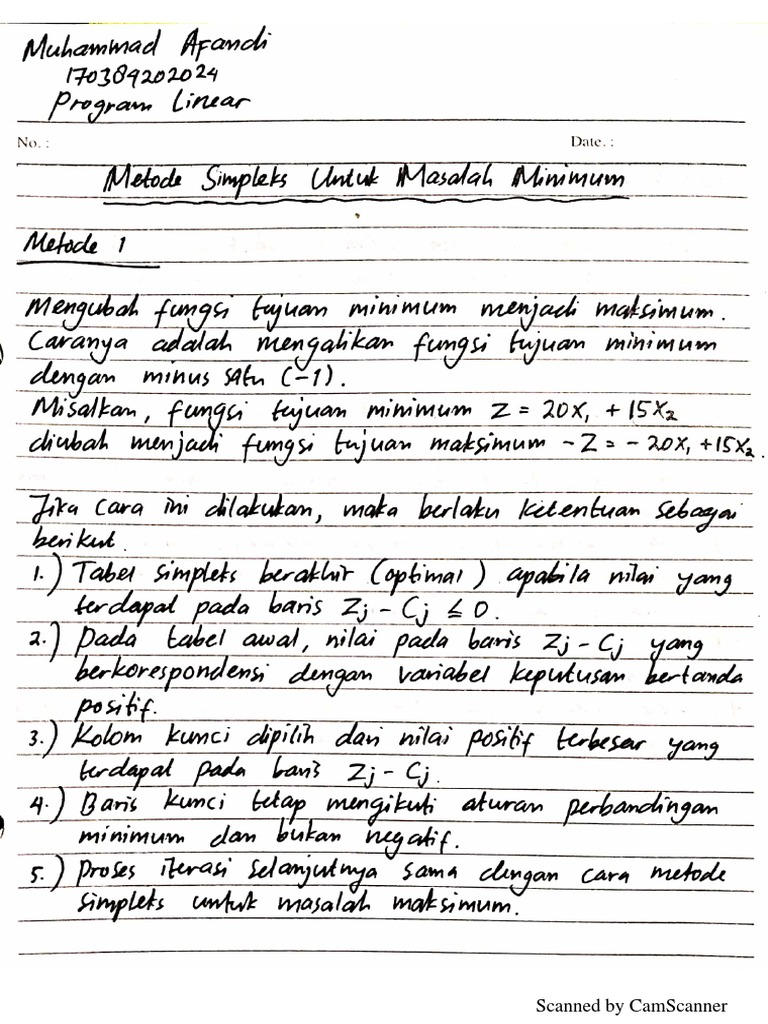 Muhammad Afandi
170384202024
Program Linear
No. :
Date. :
Metode Simpleks Untuk Masalah Minimum
Metode 1
Mengubah fungsi tujuan minimum menjadi maksimum.
Caranya adalah mengalikan fungsi tujuan minimum
dengan minus satu (-1).
Misalkan, fungsi tujuan minimum Z = 20X₁ + 15X₂
diubah menjadi fungsi tujuan maksimum -Z = - 20X₁ + 15X₂.
Jika cara ini dilakukan, maka berlaku ketentuan sebagai
berikut.
1.) Tabel simpleks berakhir (optimal) apabila nilai yang
terdapat pada baris Zj - Cj ≤ 0.
2.) Pada tabel awal, nilai pada baris Zj - Cj yang
berkorespondensi dengan variabel keputusan bertanda
positif.
3.) Kolom kunci dipilih dari nilai positif terbesar yang
terdapat pada baris Zj - Cj.
4.) Baris kunci tetap mengikuti aturan perbandingan
minimum dan bukan negatif.
5.) Proses iterasi selanjutnya sama dengan cara metode
simpleks untuk masalah maksimum.
Scanned by CamScanner